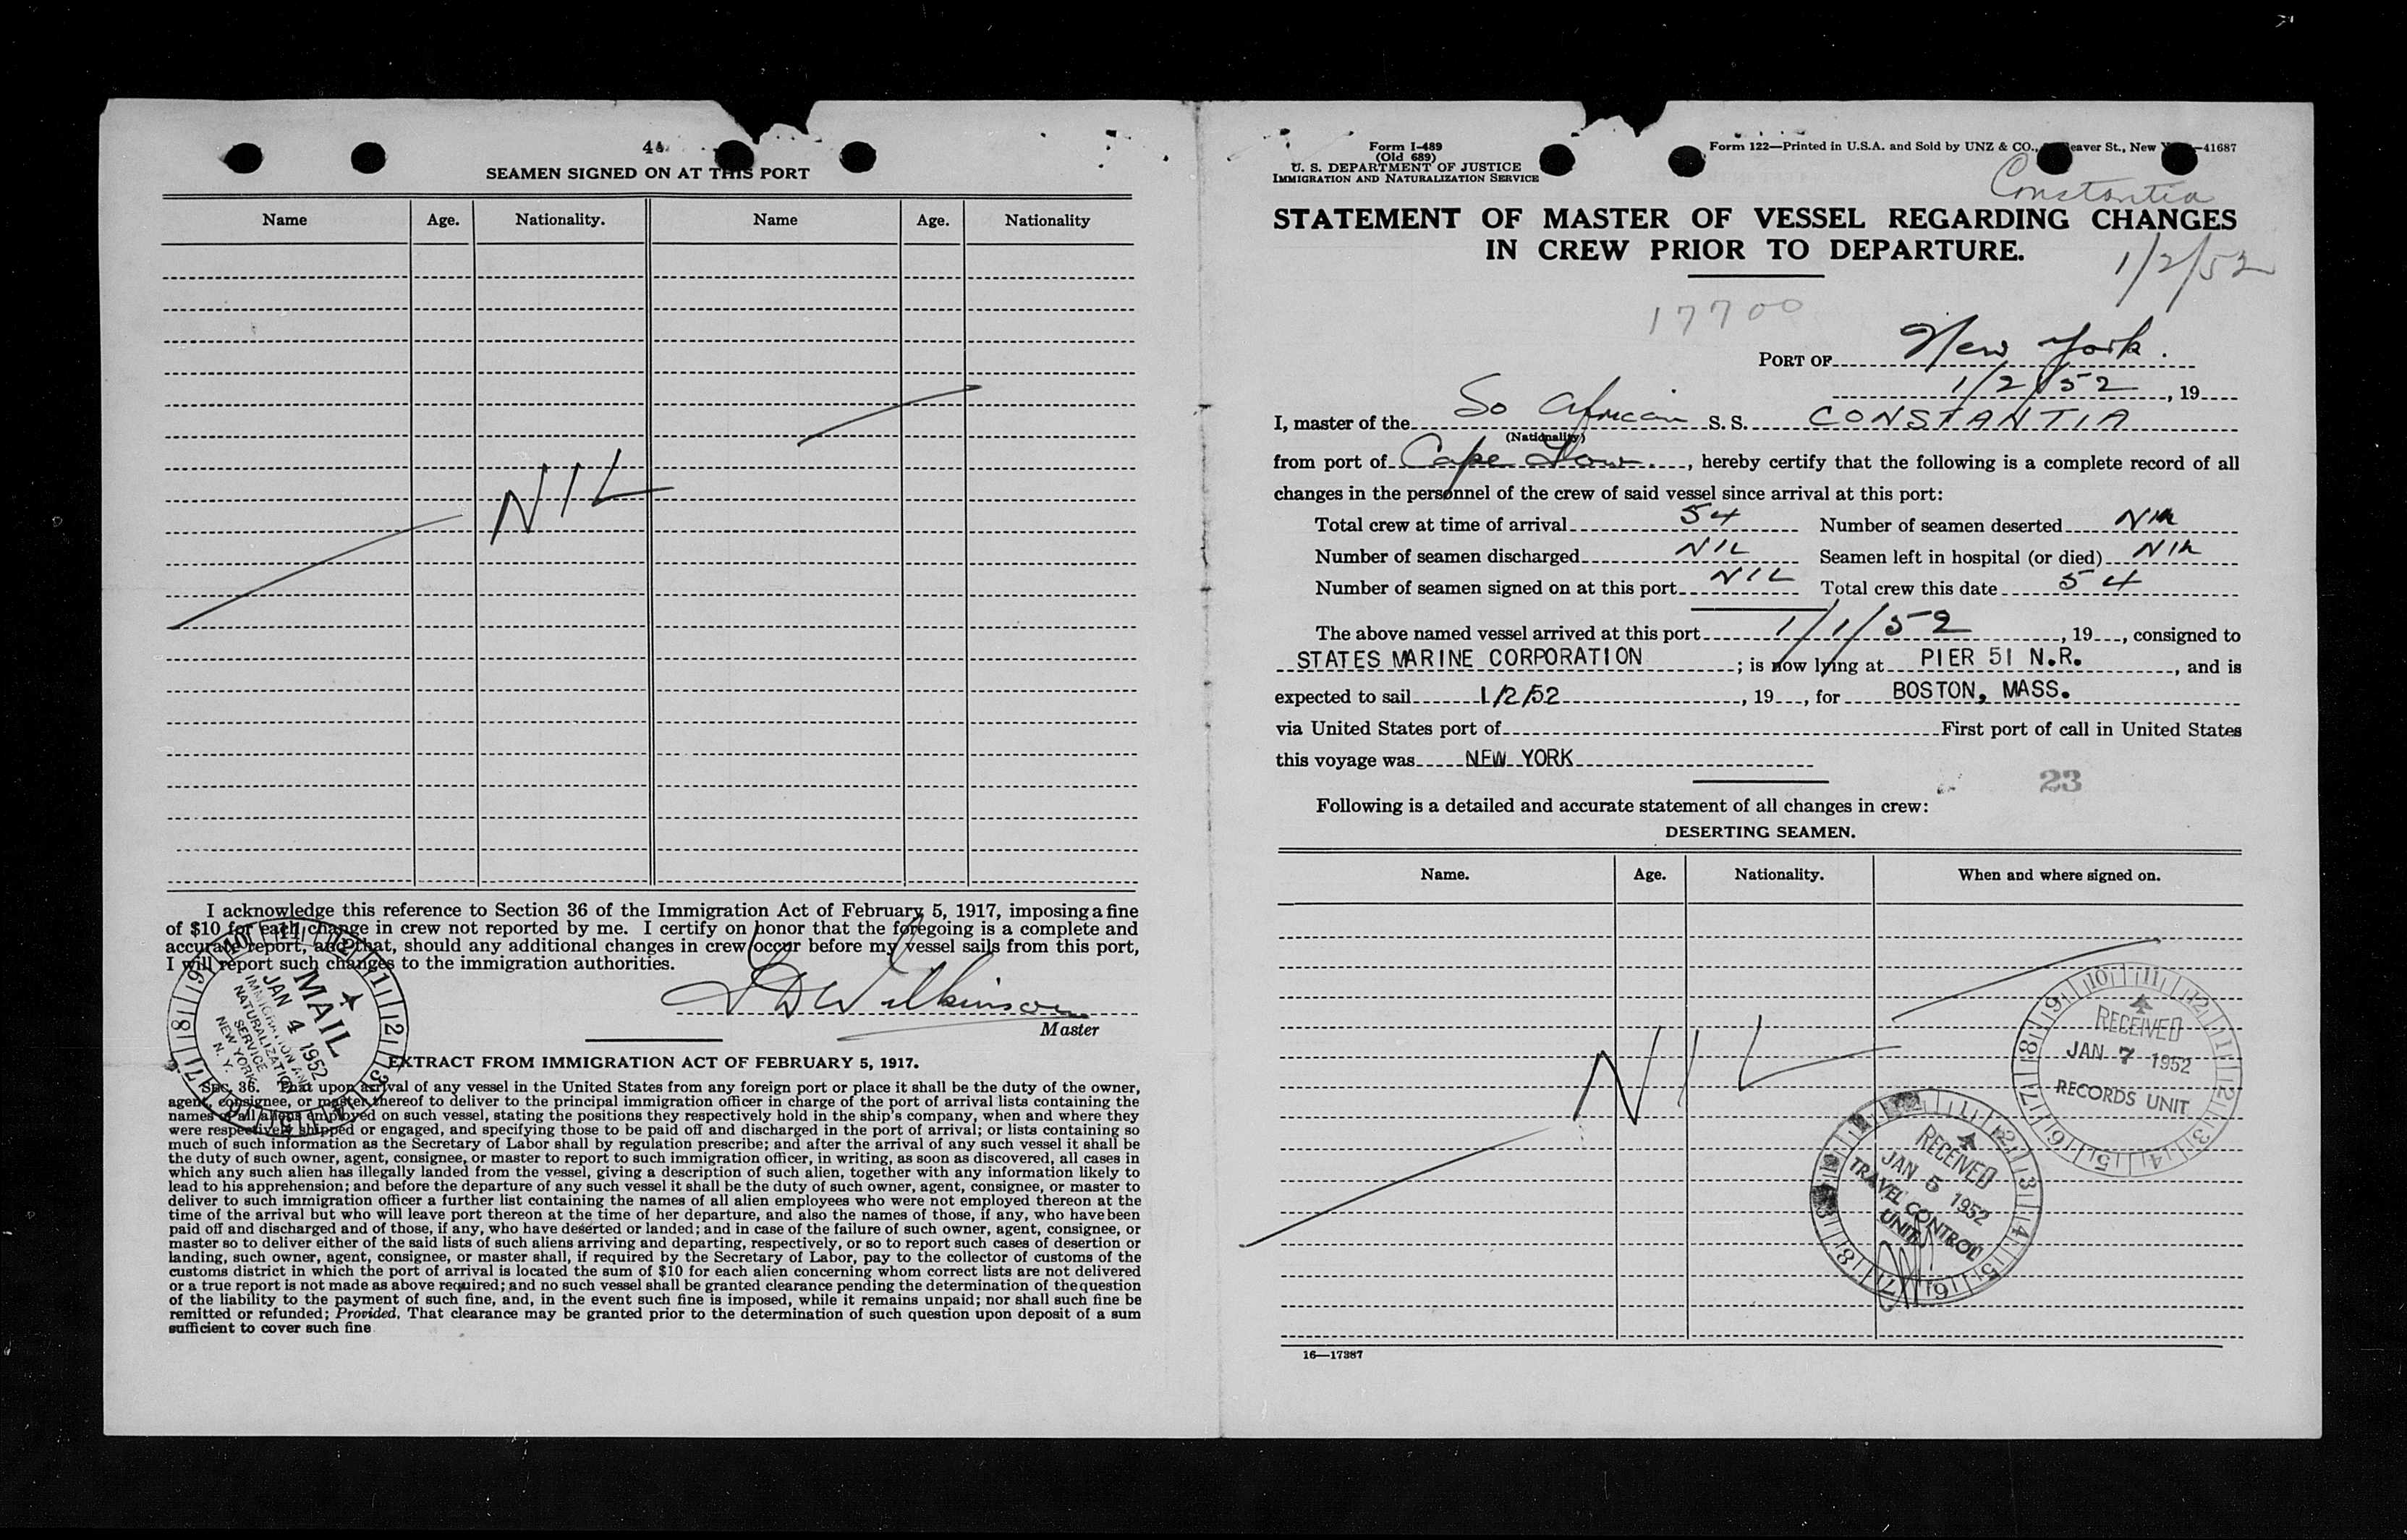 44
SEAMEN SIGNED ON AT THIS PORT
Name Age. Nationality. Name Age. Nationality
NIL
I acknowledge this reference to Section 36 of the Immigration Act of February 5, 1917, imposing a fine
of $10 for each change in crew not reported by me. I certify on honor that the foregoing is a complete and
accurate report, and that, should any additional changes in crew occur before my vessel sails from this port,
I will report such changes to the immigration authorities.
Wilkinson
Master
MAIL
JAN 4 1952
IMMIGRATION AND
NATURALIZATION
SERVICE
NEW YORK
N. Y.
EXTRACT FROM IMMIGRATION ACT OF FEBRUARY 5, 1917.
SEC. 36. That upon arrival of any vessel in the United States from any foreign port or place it shall be the duty of the owner,
agent, consignee, or master thereof to deliver to the principal immigration officer in charge of the port of arrival lists containing the
names of all aliens employed on such vessel, stating the positions they respectively hold in the ship's company, when and where they
were respectively shipped or engaged, and specifying those to be paid off and discharged in the port of arrival; or lists containing so
much of such information as the Secretary of Labor shall by regulation prescribe; and after the arrival of any such vessel it shall be
the duty of such owner, agent, consignee, or master to report to such immigration officer, in writing, as soon as discovered, all cases in
which any such alien has illegally landed from the vessel, giving a description of such alien, together with any information likely to
lead to his apprehension; and before the departure of any such vessel it shall be the duty of such owner, agent, consignee, or master to
deliver to such immigration officer a further list containing the names of all alien employees who were not employed thereon at the
time of the arrival but who will leave port thereon at the time of her departure, and also the names of those, if any, who have been
paid off and discharged and of those, if any, who have deserted or landed; and in case of the failure of such owner, agent, consignee, or
master so to deliver either of the said lists of such aliens arriving and departing, respectively, or so to report such cases of desertion or
landing, such owner, agent, consignee, or master shall, if required by the Secretary of Labor, pay to the collector of customs of the
customs district in which the port of arrival is located the sum of $10 for each alien concerning whom correct lists are not delivered
or a true report is not made as above required; and no such vessel shall be granted clearance pending the determination of the question
of the liability to the payment of such fine, and, in the event such fine is imposed, while it remains unpaid; nor shall such fine be
remitted or refunded; Provided, That clearance may be granted prior to the determination of such question upon deposit of a sum
sufficient to cover such fine
Form I-489
(Old 689)
U. S. DEPARTMENT OF JUSTICE
IMMIGRATION AND NATURALIZATION SERVICE
Form 122—Printed in U.S.A. and Sold by UNZ & CO., eaver St., New Y —41687
Constantia
STATEMENT OF MASTER OF VESSEL REGARDING CHANGES
IN CREW PRIOR TO DEPARTURE.
1/2/52
17700
PORT OF New York.
1/2/52, 19
I, master of the So African S. S. CONSTANTIA
(Nationality)
from port of Cape Town, hereby certify that the following is a complete record of all
changes in the personnel of the crew of said vessel since arrival at this port:
Total crew at time of arrival 54 Number of seamen deserted NIL
Number of seamen discharged NIL Seamen left in hospital (or died) NIL
Number of seamen signed on at this port NIL Total crew this date 54
The above named vessel arrived at this port 1/1/52, 19, consigned to
STATES MARINE CORPORATION; is now lying at PIER 51 N.R., and is
expected to sail 1/2/52, 19, for BOSTON, MASS.
via United States port of First port of call in United States
this voyage was NEW YORK
23
Following is a detailed and accurate statement of all changes in crew:
DESERTING SEAMEN.
Name. Age. Nationality. When and where signed on.
NIL
RECEIVED
JAN 7 1952
RECORDS UNIT
RECEIVED
JAN 5 1952
TRAVEL CONTROL
UNIT
16—17387